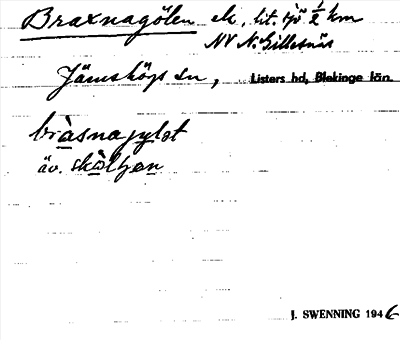 Braxnagölen ek, lit. sjö ½ km
NV N. Gillesnäs
Jämshögs sn, Listers hd, Blekinge län.
bràsnajylot
äv. skòltjen
J. SWENNING 1946